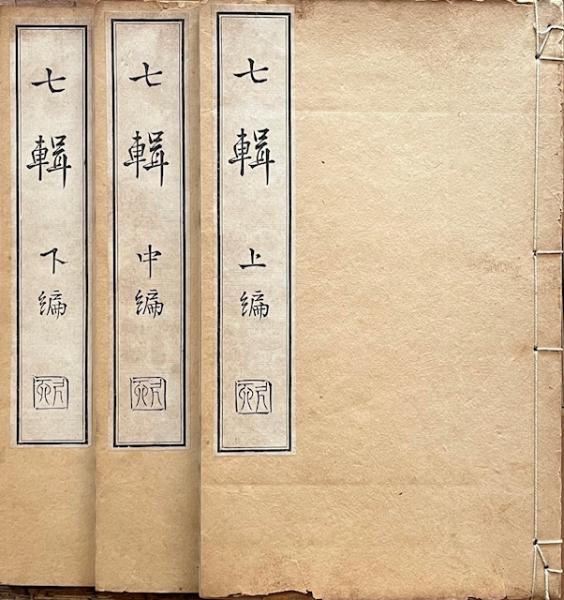 七輯 上編
七輯 中編
七輯 下編